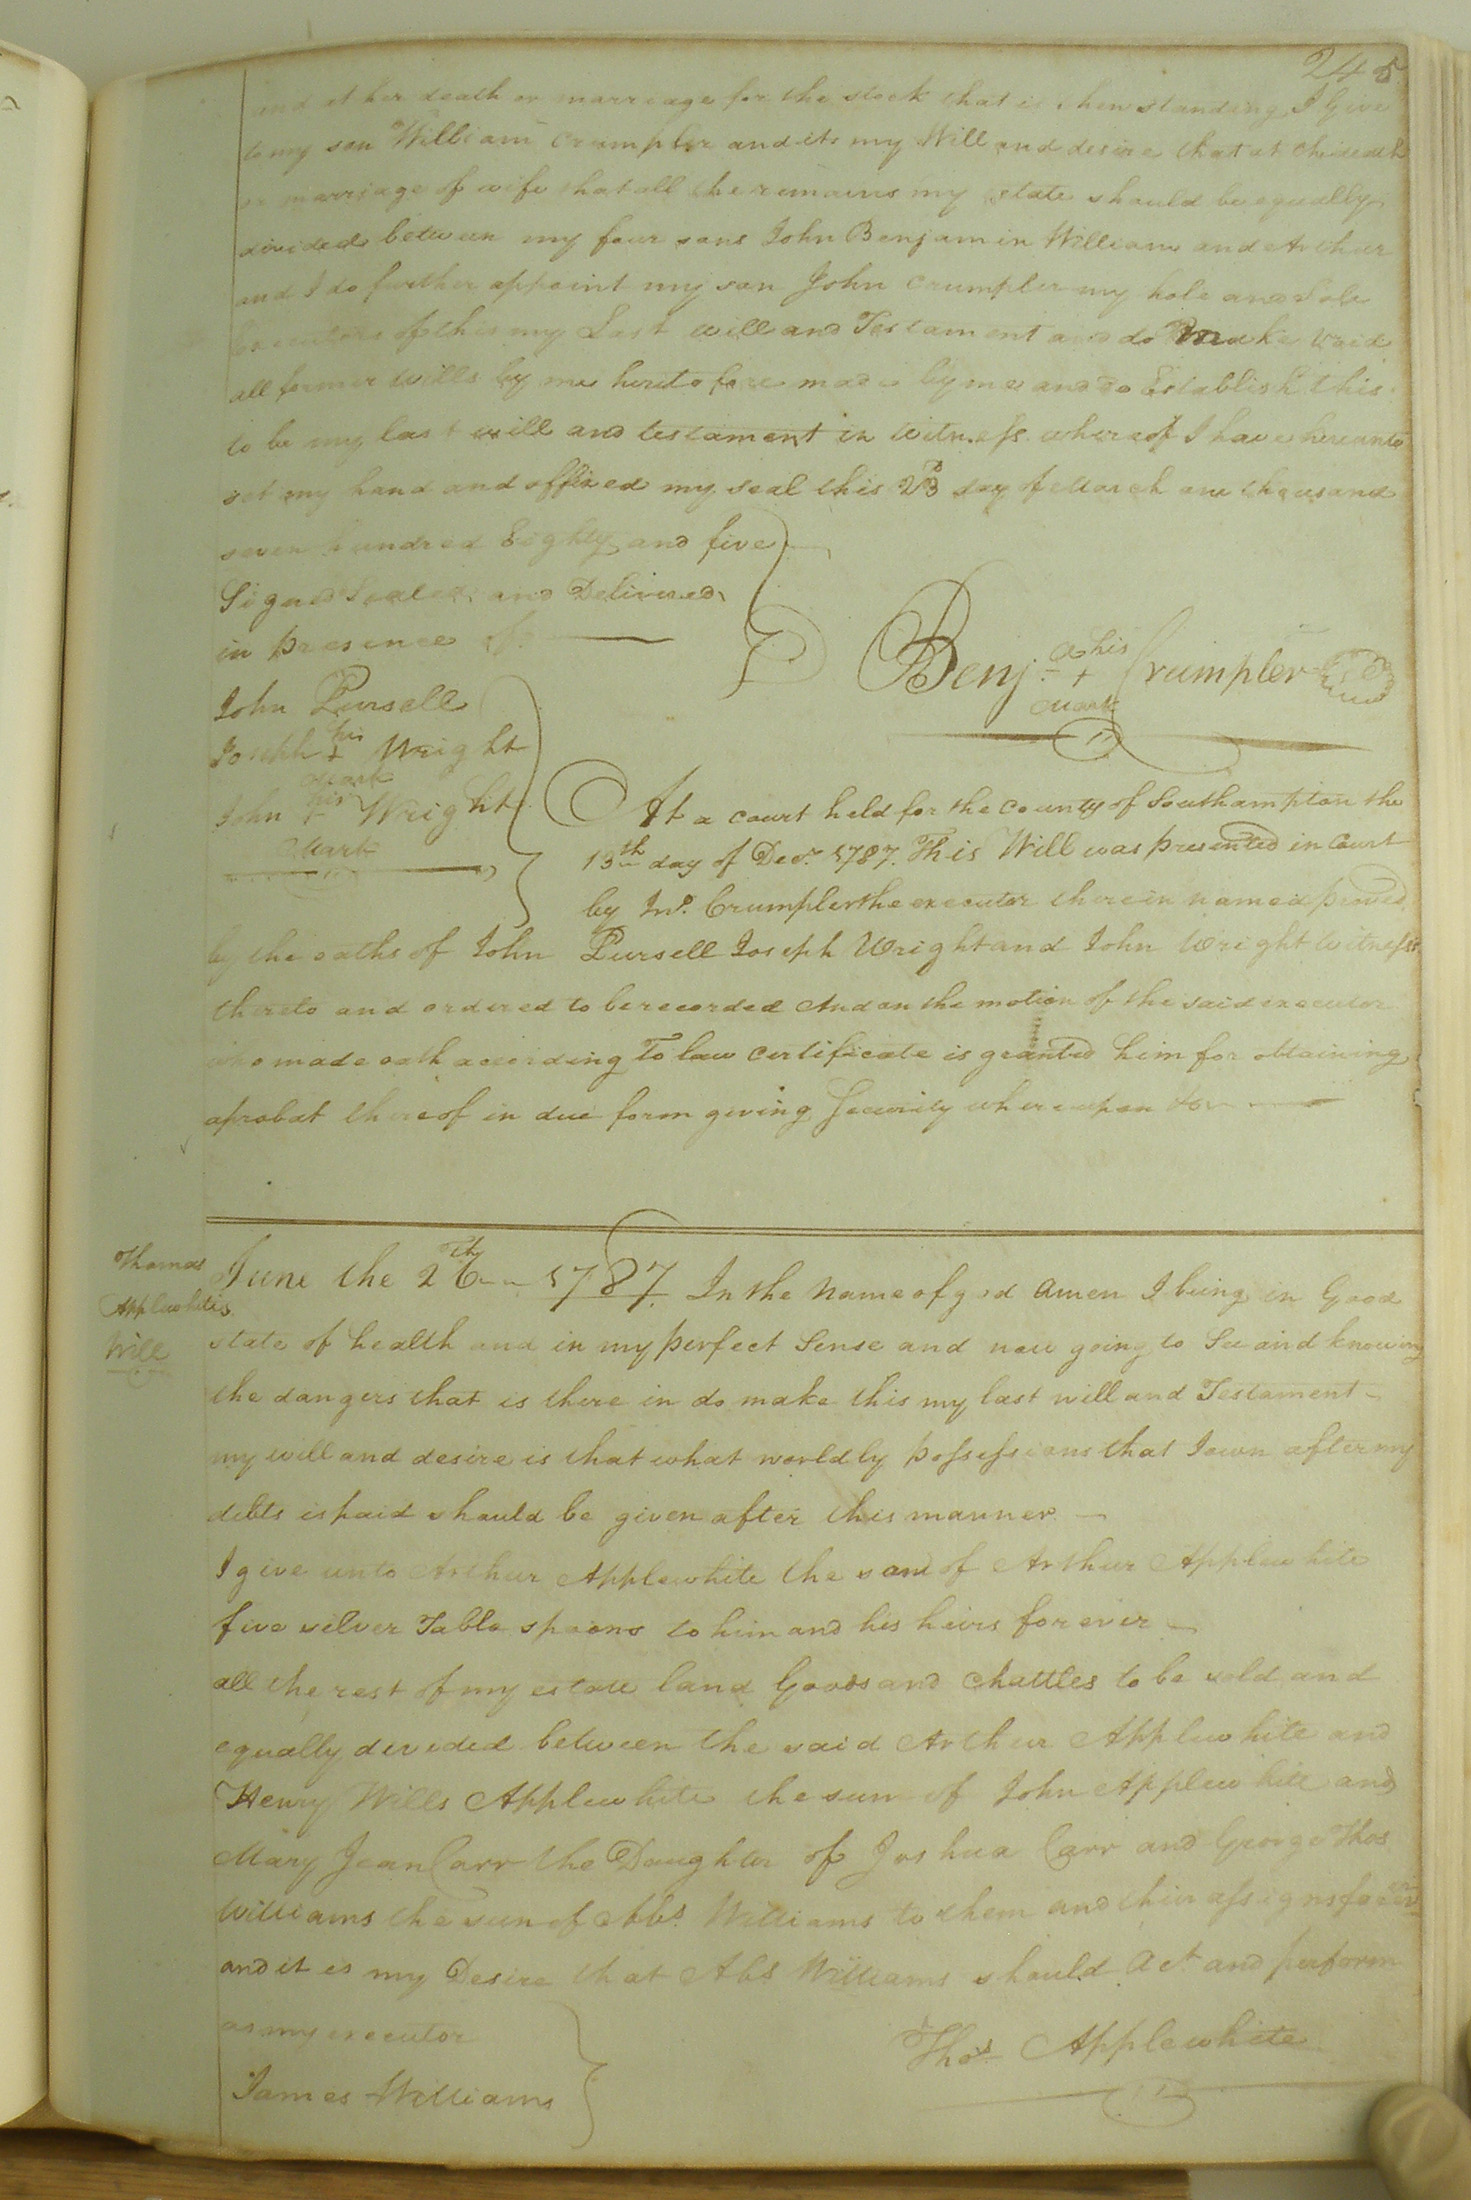 245
and at her death or marreage for the stock that is then standing I Give
to my son William Crumpler and its my Will and desire that at the death
or marriage of wife that all the remains my estate should be equally
divided between my four sons John Benjamin William and Arthur
and I do further appoint my son John Crumpler my hole and Sole
Executors of this my Last will and Testament and do Make void
all former wills by me heretofore made by me and do Establish this
to be my last will and testament in witness whereof I have hereunto
set my hand and affixed my seal this 23d day of March one thousand
seven hundred Eighty and five
Signed Sealed and Delivered
in presence of
Benj.a his + mark Crumpler
John Pursell
Joseph his + mark Wright
John his + mark Wright
At a court held for the county of Southampton the
13th day of Decr. 1787. This Will was presented in Court
by Jno. Crumpler the executor therein named proved
by the oaths of John Pursell Joseph Wright and John Wright witness
thereto and ordered to be recorded And on the motion of the said executor
who made oath according To law certificate is granted him for obtaining
a probat thereof in due form giving Security whereupon &c
Thomas
Applewhites
Will
June the 26th 1787. In the Name of god amen I being in Good
state of health and in my perfect Sense and now going to See and knowing
the dangers that is there in do make this my last will and Testament
my will and desire is that what worldly possessions that I own after my
debts is paid should be given after this manner
I give unto Arthur Applewhite the son of Arthur Applewhite
five silver Table spoons to him and his heirs forever
all the rest of my estate land Goods and Chattles to be sold and
equally divided between the said Arthur Applewhite and
Henry Wills Applewhite the sun of John Applewhite and
Mary Jean Carr the Daughter of Joshua Carr and George Thos
Williams the sun of Abs. Williams to them and their assigns forever
and it is my Desire that Abs Williams should Act and perform
as my executor
Thos Applewhite
James Williams